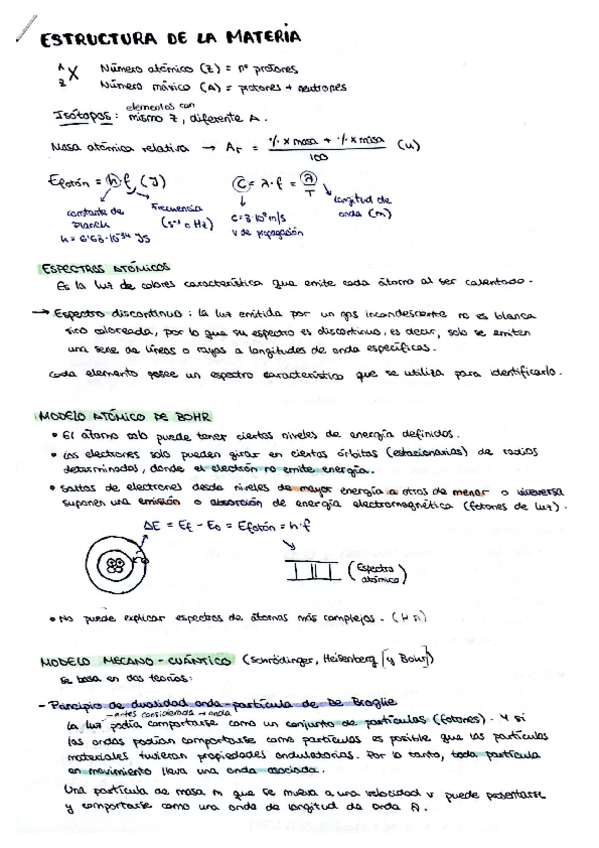 ESTRUCTURA DE LA MATERIA
A Z X Número atómico (Z) = nº protones
Número másico (A) = protones + neutrones
elementos con
Isótopos: mismo Z, diferente A.
Masa atómica relativa → Ar = %·x masa + %·x masa / 100 (u)
Efotón = h·f (J)
C = λ·f = λ/T
constante de Planck
h = 6'63·10⁻³⁴ JS
Frecuencia (s⁻¹ o Hz)
c = 3·10⁸ m/s
v de propagación
longitud de onda (m)
ESPECTROS ATÓMICOS
Es la luz de colores característica que emite cada átomo al ser calentado.
→ Espectro discontinuo: la luz emitida por un gas incandescente no es blanca
sino coloreada, por lo que su espectro es discontinuo, es decir, solo se emiten
una serie de líneas o rayas a longitudes de onda específicas.
Cada elemento posee un espectro característico que se utiliza para identificarlo.
MODELO ATÓMICO DE BOHR
• El átomo solo puede tener ciertos niveles de energía definidos.
• Los electrones solo pueden girar en ciertas órbitas (estacionarias) de radios
determinados, donde el electrón no emite energía.
• Saltos de electrones desde niveles de mayor energía a otros de menor o viceversa
suponen una emisión o absorción de energía electromagnética (fotones de luz).
ΔE = Ef - Eo = Efotón = h·f
(Espectro atómico)
• No puede explicar espectros de átomos más complejos.
MODELO MECANO-CUÁNTICO (Schrödinger, Heisenberg [y Bohr])
Se basa en dos teorías:
- Principio de dualidad onda-partícula de De Broglie
antes considerada → onda
La luz podía comportarse como un conjunto de partículas (fotones). Y si
las ondas podían comportarse como partículas es posible que las partículas
materiales tuvieran propiedades ondulatorias. Por lo tanto, toda partícula
en movimiento lleva una onda asociada.
Una partícula de masa m que se mueva a una velocidad v puede presentarse
y comportarse como una onda de longitud de onda λ.